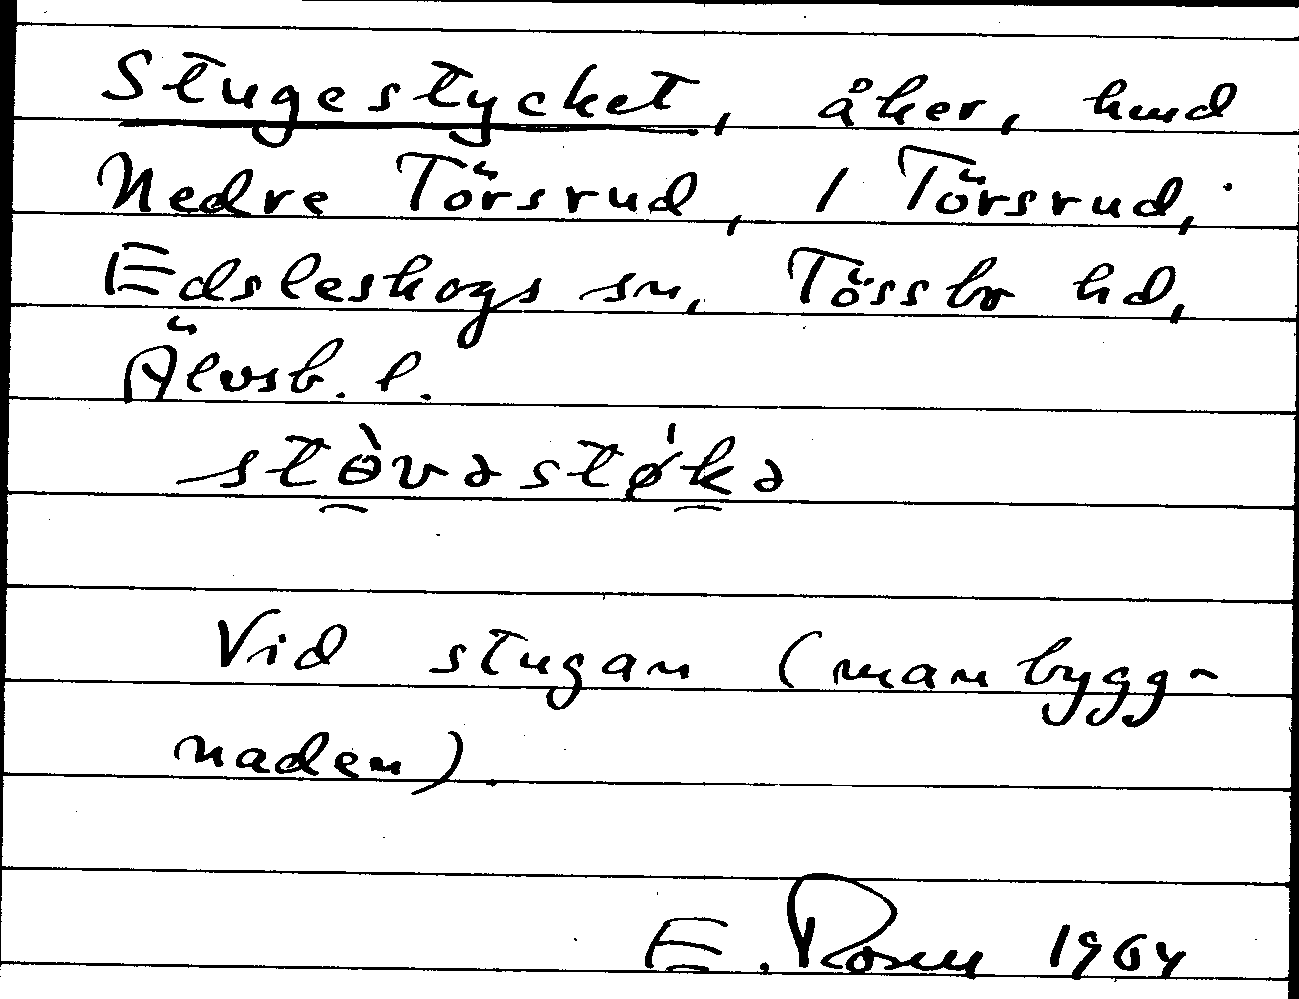 Stugestycket, åker, hmd
Nedre Törsrud, 1 Törsrud,
Edsleskogs sn, Tössbo hd,
Älvsb. l.
stɵ̀vəstǿkə
Vid stugan (manbygg-
naden).
E. Rosen 1964